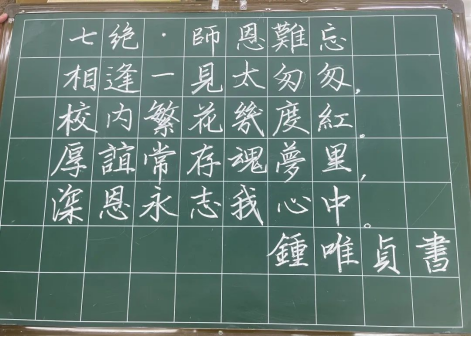 七绝·師恩難忘
相逢一見太匆匆，
校内繁花幾度紅。
厚誼常存魂夢里，
深恩永志我心中。
鍾唯貞書